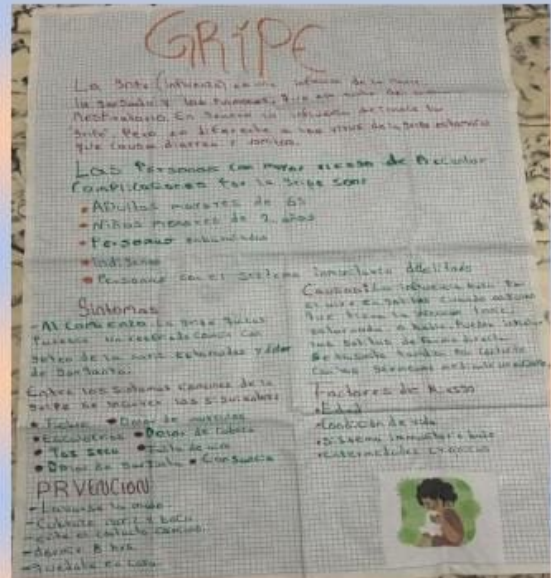 GRIPE
La gripe (influenza) es una infección de la nariz,
la garganta y los pulmones, que
En general la influenza se
"gripe". Pero es diferente a los virus de la gripe estomacal
que causa diarrea y vomitos.
Las Personas con mayor riesgo de Presentar
Complicaciones por la gripe son:
• Adultos mayores de 65
• Niños menores de 2 años
• Personas
• Indigenas
• Personas con el sistema inmunitario debilitado
Sintomas
- Al Comienzo. La gripe quizas
Parezca un resfriado comun con
goteo de la nariz estornudos y dolor
de garganta.
Entre los sintomas comunes de la
gripe se incluyen los siguientes
• Fiebre • Dolor de musculos
• Escalofrios • Dolor de Cabeza
• Tos seca • Falta de aire
• Dolor de garganta • Cansancio
PRVENCION
- Lavarse la mano
- Cubrirse nariz y boca
- evite el contacto cercano
- dormir 8 hrs
- Quedate en casa
Causas: La influenza viaja Por
el aire en gotitas cuando alguien
que tiene la infeccion tose,
estornuda o habla. Puedes inhalar
las gotitas de forma directa
Factores de Riesgo
• Edad
• Condición de vida
• Sistema inmunitario bajo
• Enfermedades cronicas